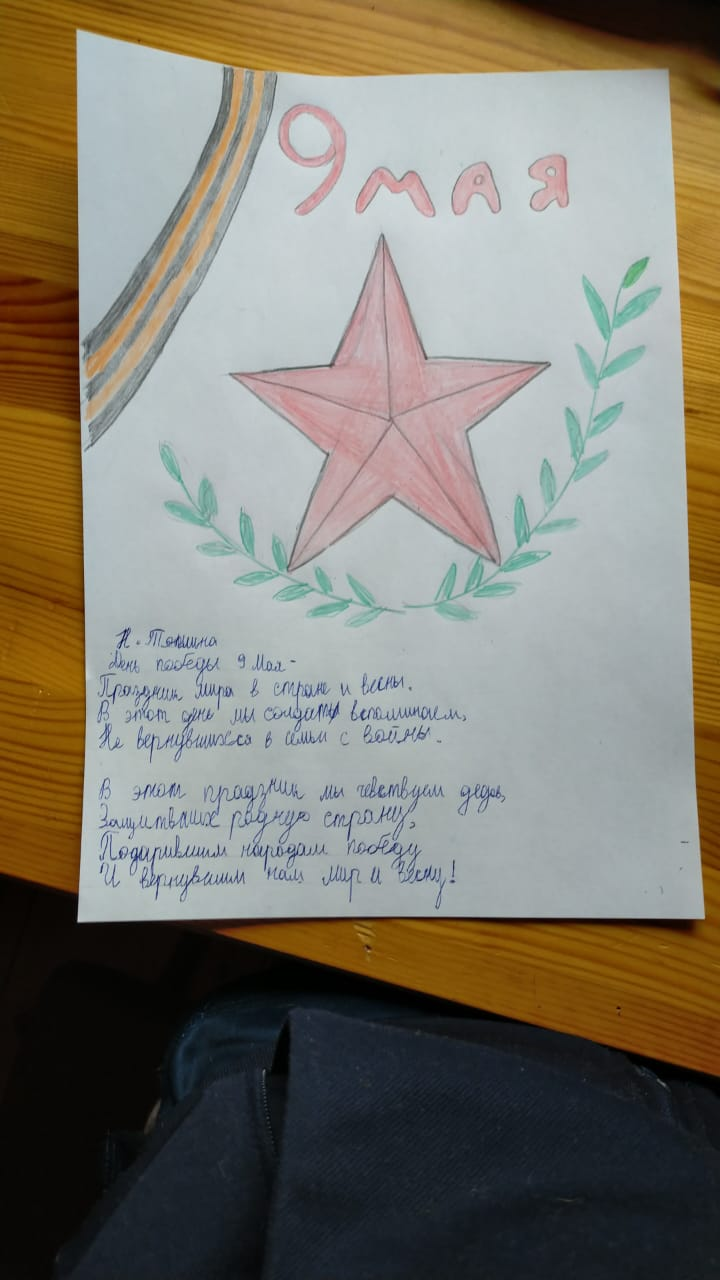 9 мая
Н. Томилина
День победы 9 Мая -
Праздник мира в стране и весны.
В этот дне мы солдаты вспоминаем,
Не вернувшихся в семьи с войны.
В этот праздник мы чевствуем дедов,
Защитвших родную страну,
Подарившим народам победу
И вернувшим нам мир и весну!